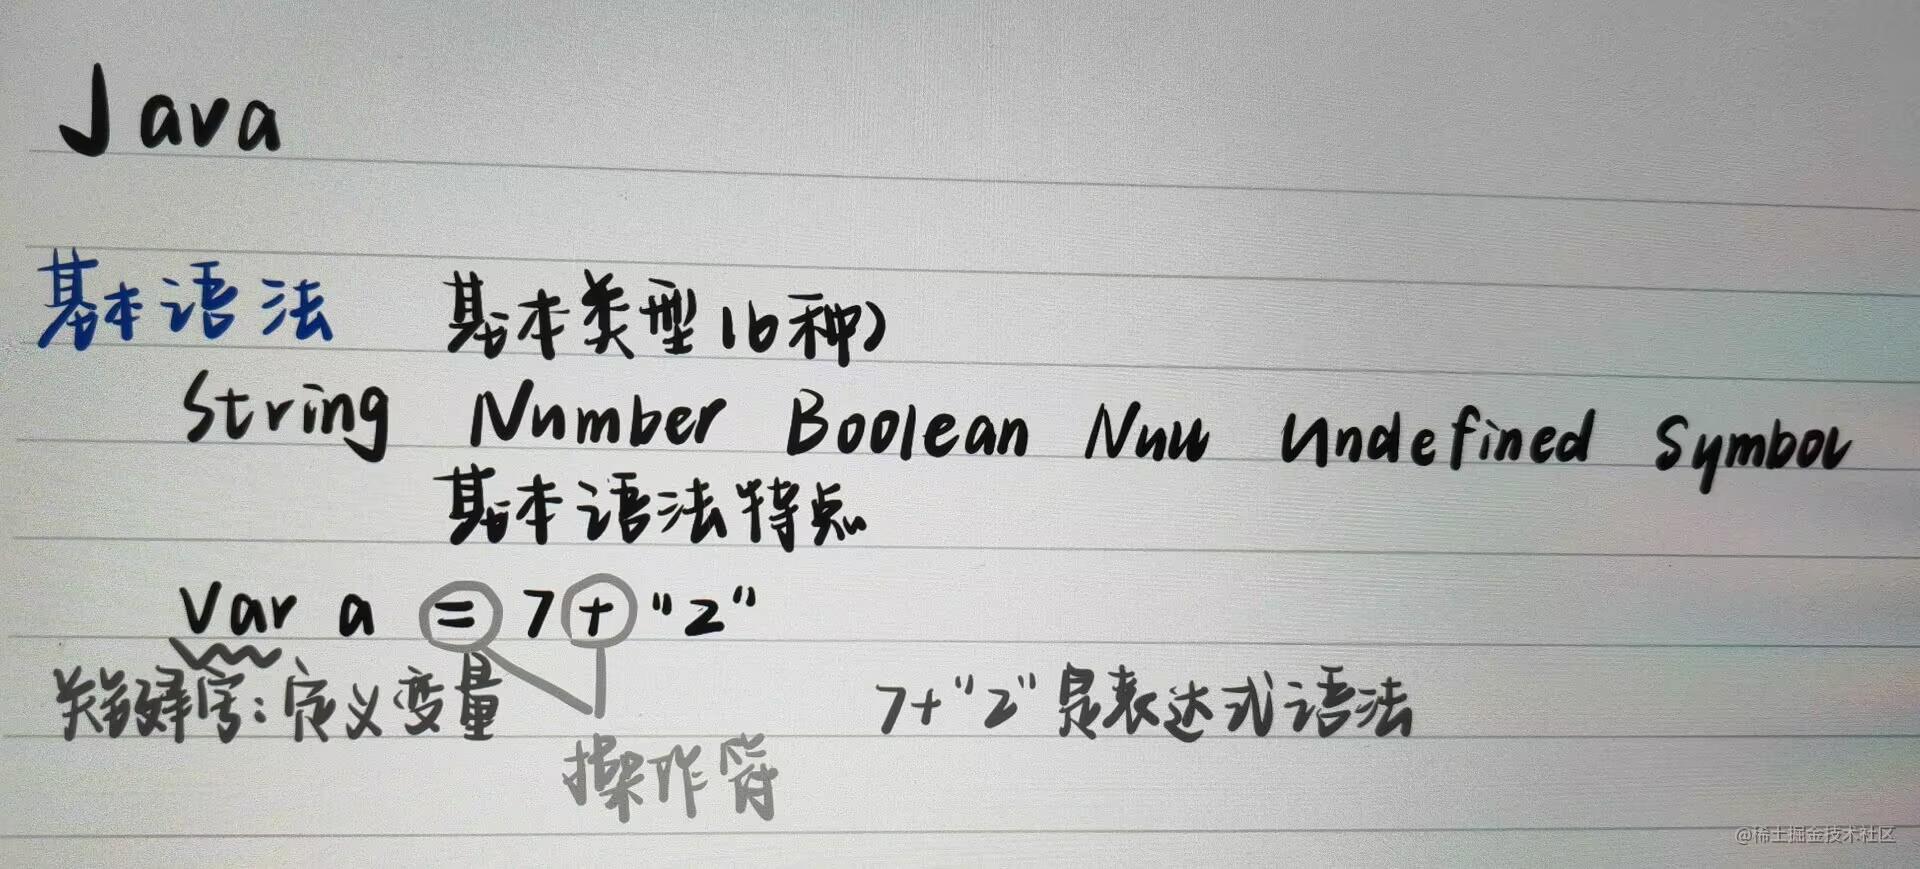 Java
基本语法 基本类型(6种)
String Number Boolean Null Undefined Symbol
基本语法特点
Var a = 7 + "2"
关键字:定义变量 7+"2"是表达式语法
操作符
@稀土掘金技术社区